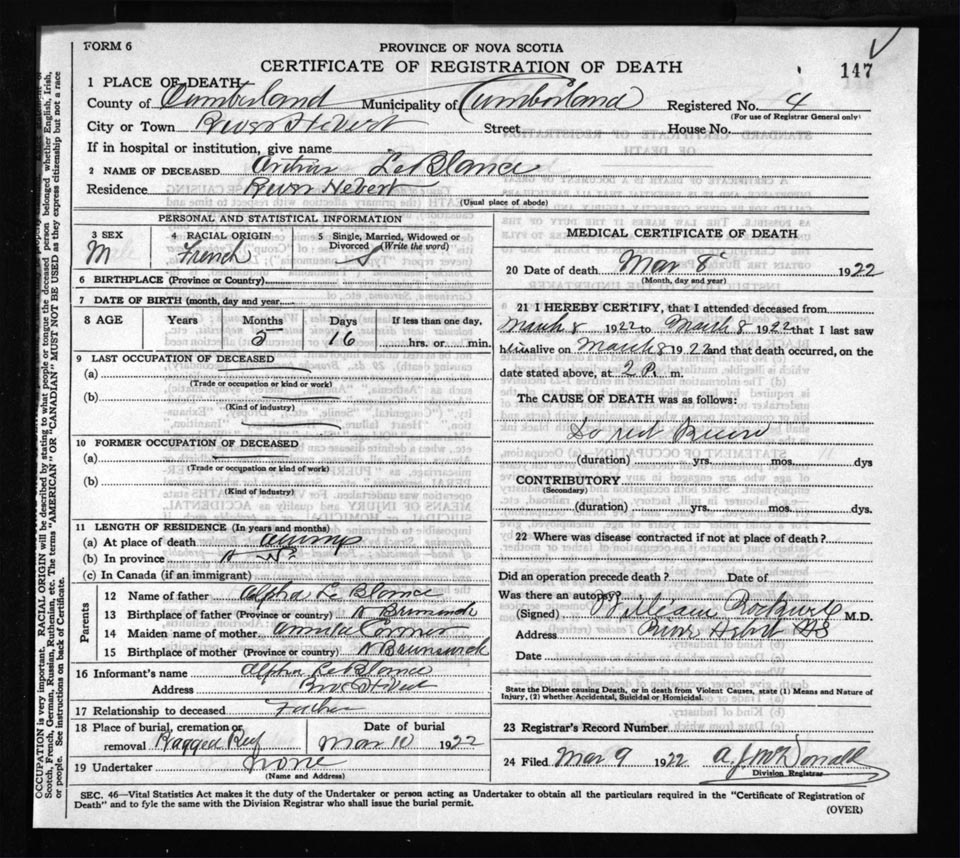 FORM 6
PROVINCE OF NOVA SCOTIA
CERTIFICATE OF REGISTRATION OF DEATH
147
1 PLACE OF DEATH
County of Cumberland Municipality of Cumberland Registered No. 4
(For use of Registrar General only)
City or Town River Hebert Street House No.
If in hospital or institution, give name
2 NAME OF DECEASED Le Blance
Residence River Hebert
(Usual place of abode)
PERSONAL AND STATISTICAL INFORMATION
3 SEX M
4 RACIAL ORIGIN French
5 Single, Married, Widowed or Divorced (Write the word) S
6 BIRTHPLACE (Province or Country)
7 DATE OF BIRTH (month, day and year)
8 AGE Years Months 5 Days 16 If less than one day, hrs. or min.
9 LAST OCCUPATION OF DECEASED
(a)
(Trade or occupation or kind or work)
(b)
(Kind of industry)
10 FORMER OCCUPATION OF DECEASED
(a)
(Trade or occupation or kind or work)
(b)
(Kind of industry)
11 LENGTH OF RESIDENCE (In years and months)
(a) At place of death always
(b) In province
(c) In Canada (if an immigrant)
Parents
12 Name of father Alpha Le Blance
13 Birthplace of father (Province or country) N Brunswick
14 Maiden name of mother Cormier
15 Birthplace of mother (Province or country) N Brunswick
16 Informant's name Alpha Le Blance
Address River Hebert
17 Relationship to deceased Father
18 Place of burial, cremation or removal Ragged Reef Date of burial Mar 10 1922
19 Undertaker none
(Name and Address)
MEDICAL CERTIFICATE OF DEATH
20 Date of death Mar 8 1922
(Month, day and year)
21 I HEREBY CERTIFY, that I attended deceased from
March 8 1922 to March 8 1922 that I last saw
him alive on March 8 1922 and that death occurred, on the
date stated above, at 2 P. m.
The CAUSE OF DEATH was as follows:
(duration) yrs. mos. dys
CONTRIBUTORY
(Secondary)
(duration) yrs. mos. dys.
22 Where was disease contracted if not at place of death?
Did an operation precede death? Date of
Was there an autopsy?
(Signed) William Rockwell M.D.
Address River Hebert NS
Date
State the Disease causing Death, or in death from Violent Causes, state (1) Means and Nature of
Injury, (2) whether Accidental, Suicidal or Homicidal.
23 Registrar's Record Number
24 Filed Mar 9 1922 A. J. McDonald
Division Registrar
SEC. 46—Vital Statistics Act makes it the duty of the Undertaker or person acting as Undertaker to obtain all the particulars required in the "Certificate of Registration of
Death" and to fyle the same with the Division Registrar who shall issue the burial permit.
(OVER)
OCCUPATION is very important. RACIAL ORIGIN will be described by stating to what people or tongue the deceased person belonged whether English, Irish,
Scotch, French, German, Russian, Ruthenian, etc. The terms "AMERICAN" OR "CANADIAN" MUST NOT BE USED as they express citizenship but not a race
or people. See instructions on back of Certificate.